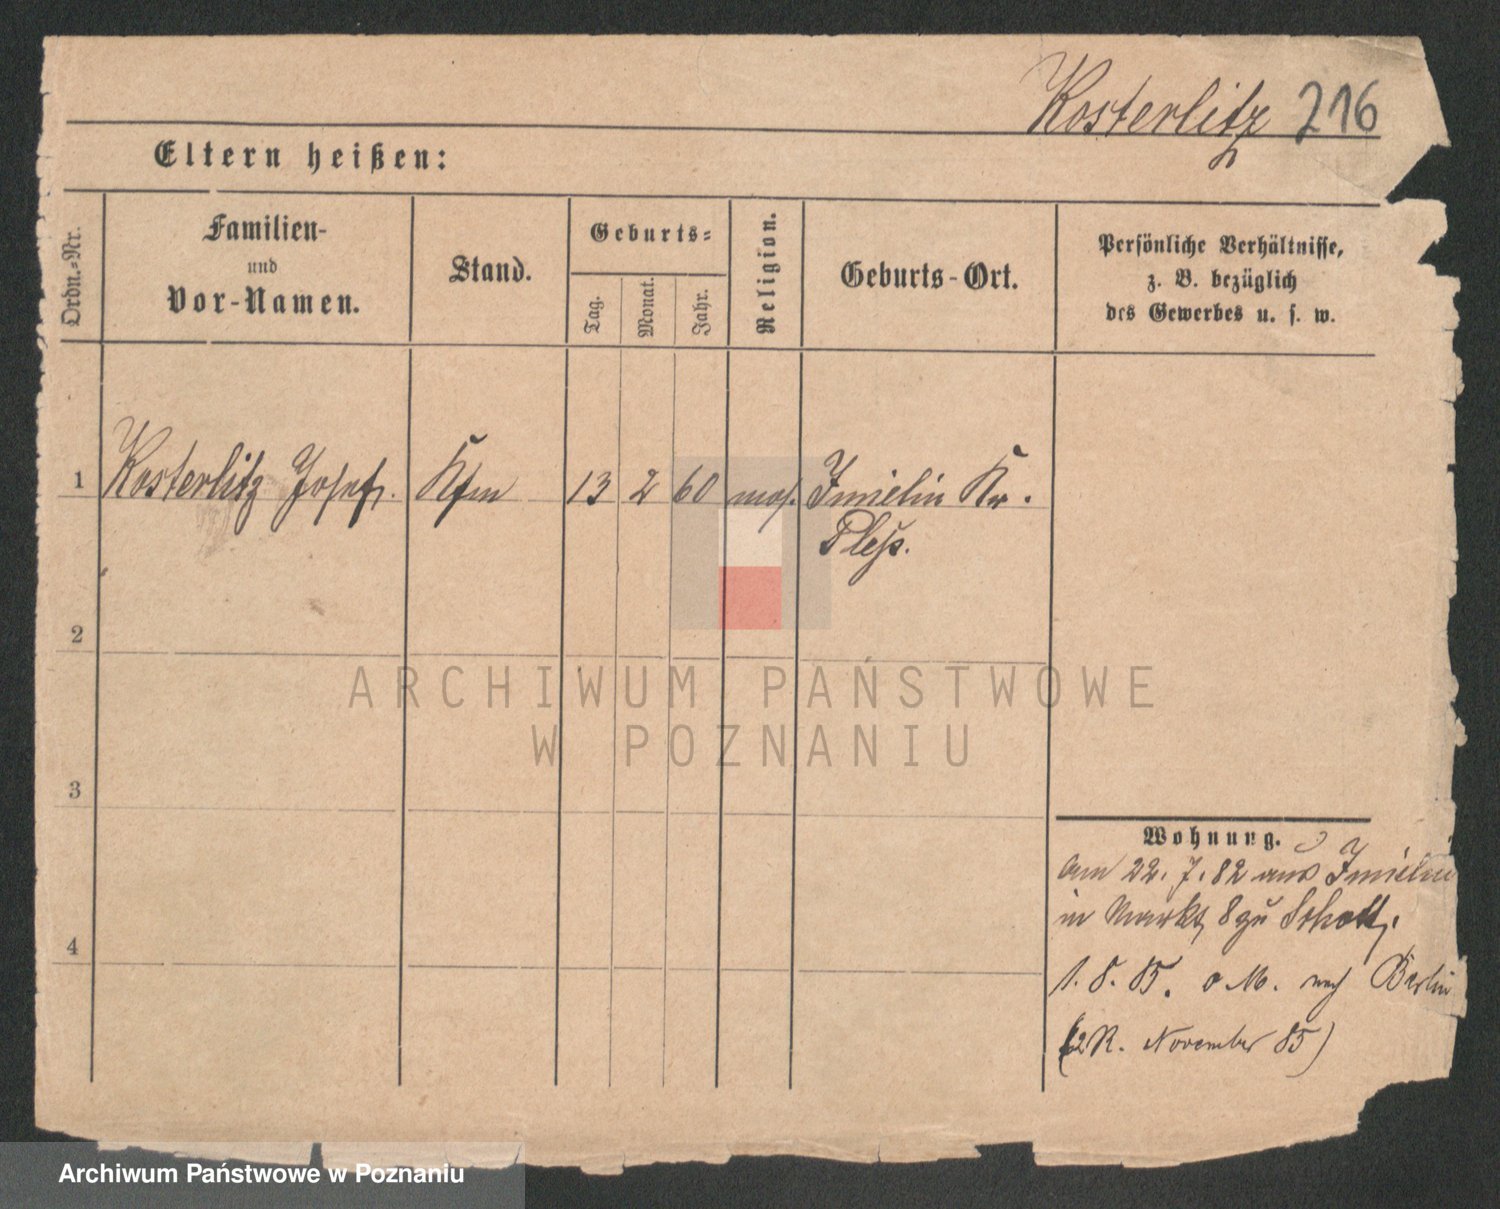 Kosterlitz 216
Eltern heißen:
Ordn.-Nr.
Familien-
und
Vor-Namen.
Stand.
Geburts-
Tag.
Monat.
Jahr.
Religion.
Geburts-Ort.
Persönliche Verhältnisse,
z. B. bezüglich
des Gewerbes u. s. w.
1 Kosterlitz Josef. Kfm 13 2 60 mos. Imielin Kr.
Pleß.
2
3
4
Wohnung.
am 22. 7. 82 aus Imielin
in Markt 8 zu
1. 8. 85. o M. nach Berlin
(2 R. November 85)
ARCHIWUM PAŃSTWOWE
W POZNANIU
Archiwum Państwowe w Poznaniu